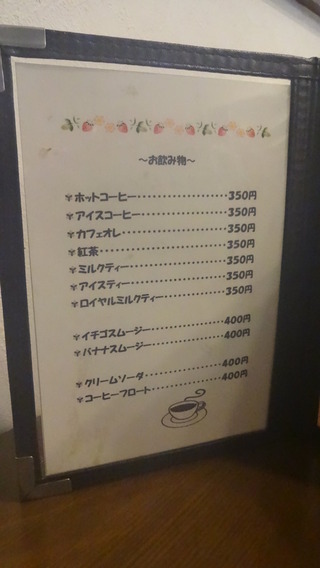 ～お飲み物～
ホットコーヒー・・・・・・・・・・・・・・・・・・350円
アイスコーヒー・・・・・・・・・・・・・・・・・・350円
カフェオレ・・・・・・・・・・・・・・・・・・・・・350円
紅茶・・・・・・・・・・・・・・・・・・・・・・・・・350円
ミルクティー・・・・・・・・・・・・・・・・・・・350円
アイスティー・・・・・・・・・・・・・・・・・・・350円
ロイヤルミルクティー・・・・・・・・・・・・350円
イチゴスムージー・・・・・・・・・・・・・・・400円
バナナスムージー・・・・・・・・・・・・・・・400円
クリームソーダ・・・・・・・・・・・・・・・・・400円
コーヒーフロート・・・・・・・・・・・・・・・400円